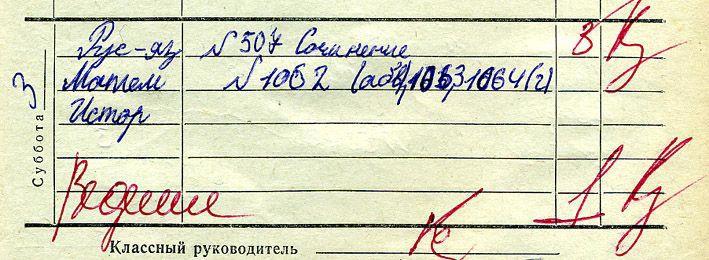 Рус-яз N 507 Сочинение 3
Матем N 1062 (абв), 1063, 1064 (г)
Истор
Суббота 3
Ведение 1
Классный руководитель